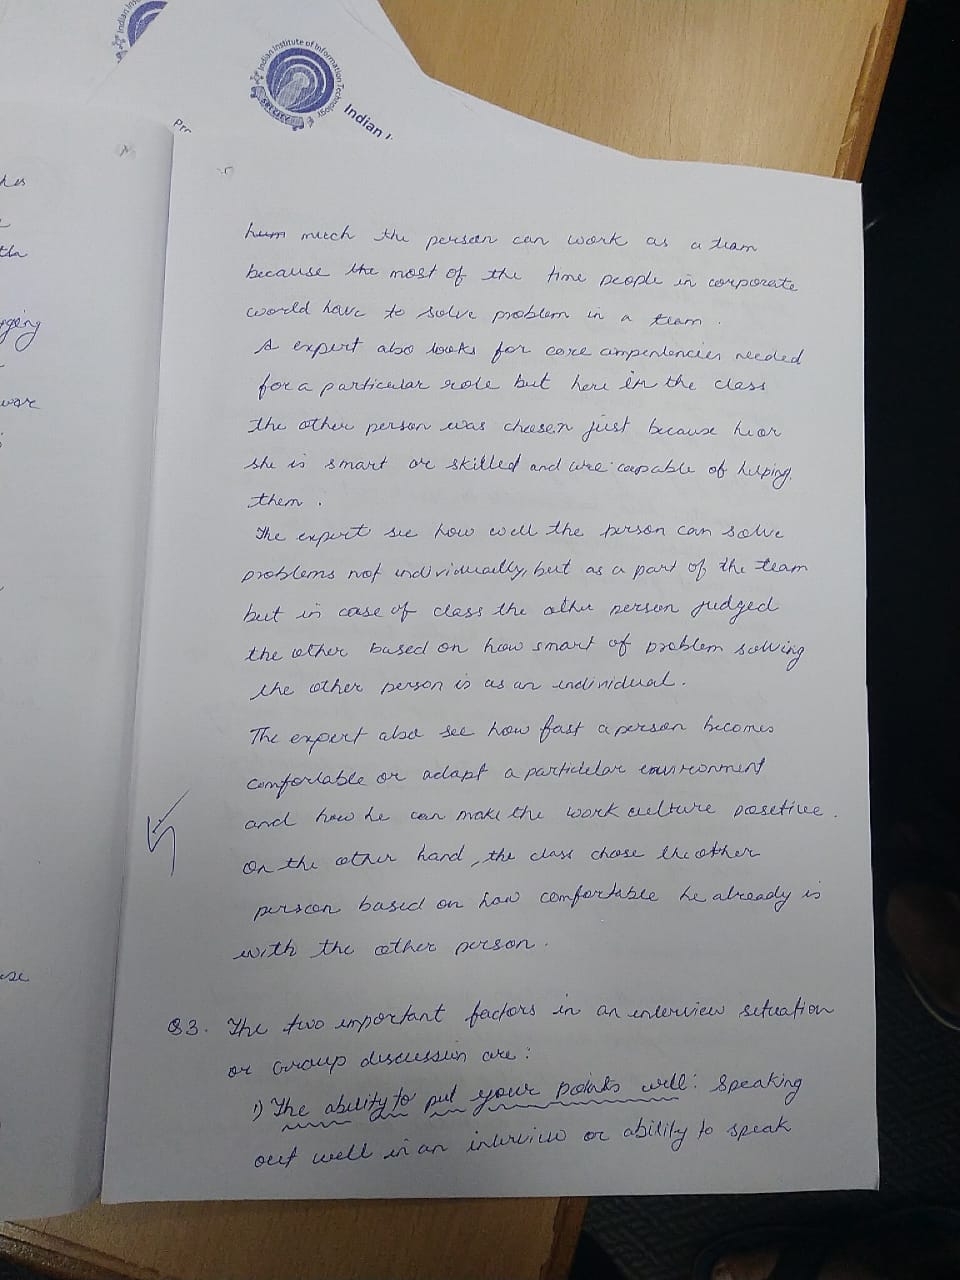 Indian Institute of Information Technology
Indian
hum much the person can work as a team
because the most of the time people in corporate
world have to solve problem in a team.
A expert also looks for core competencies needed
for a particular role but here in the class
the other person was choosen just because he or
she is smart or skilled and are capable of helping
them.
The expert see how well the person can solve
problems not individually, but as a part of the team
but in case of class the other person judged
the other based on how smart of problem solving
the other person is as an individual.
The expert also see how fast a person becomes
comfortable or adapt a particular environment
and how he can make the work culture posetive.
On the other hand, the class chose the other
person based on how comfortable he already is
with the other person.
Q3. The two important factors in an interview situation
or Group discussion are:
1) The ability to put your points well: Speaking
out well in an interview or ability to speak